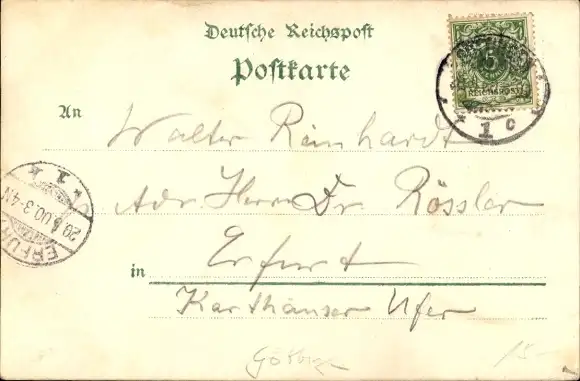 Deutsche Reichspost
Postkarte
5
REICHSPOST
1 c
An Walter Reinhardt
Adr. Herrn Dr. Rössler
in Erfurt
Karthäuser Ufer
ERFURT
1
00.3-4N
15.-